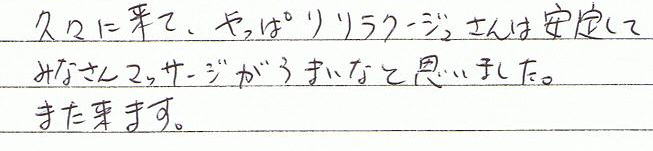 久々に来て、やっぱりリラクージュさんは安定して
みなさんマッサージがうまいなと思いました。
また来ます。